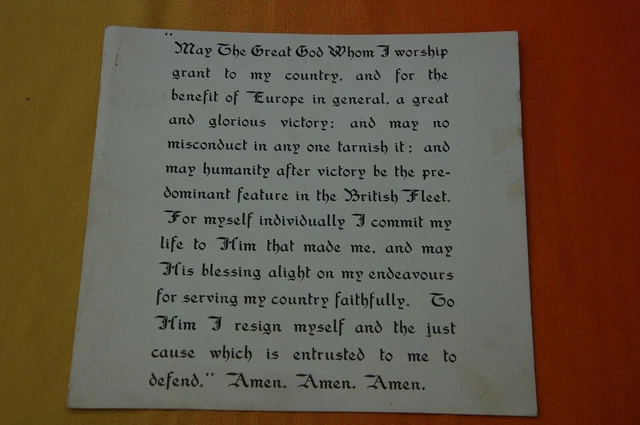 "May The Great God Whom I worship
grant to my country, and for the
benefit of Europe in general, a great
and glorious victory; and may no
misconduct in any one tarnish it; and
may humanity after victory be the pre-
dominant feature in the British Fleet.
For myself individually I commit my
life to Him that made me, and may
His blessing alight on my endeavours
for serving my country faithfully. To
Him I resign myself and the just
cause which is entrusted to me to
defend." Amen. Amen. Amen.